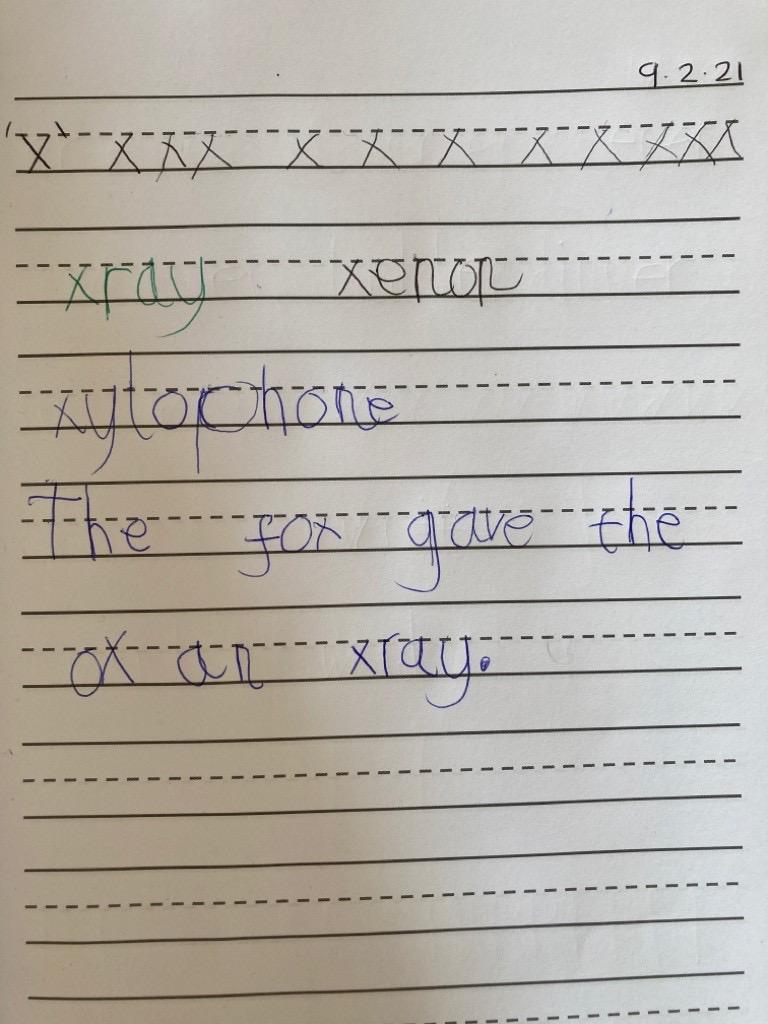 9.2.21
'x' x x x x x x x x x x x
xray xenon
xylophone
The fox gave the
ox an xray.